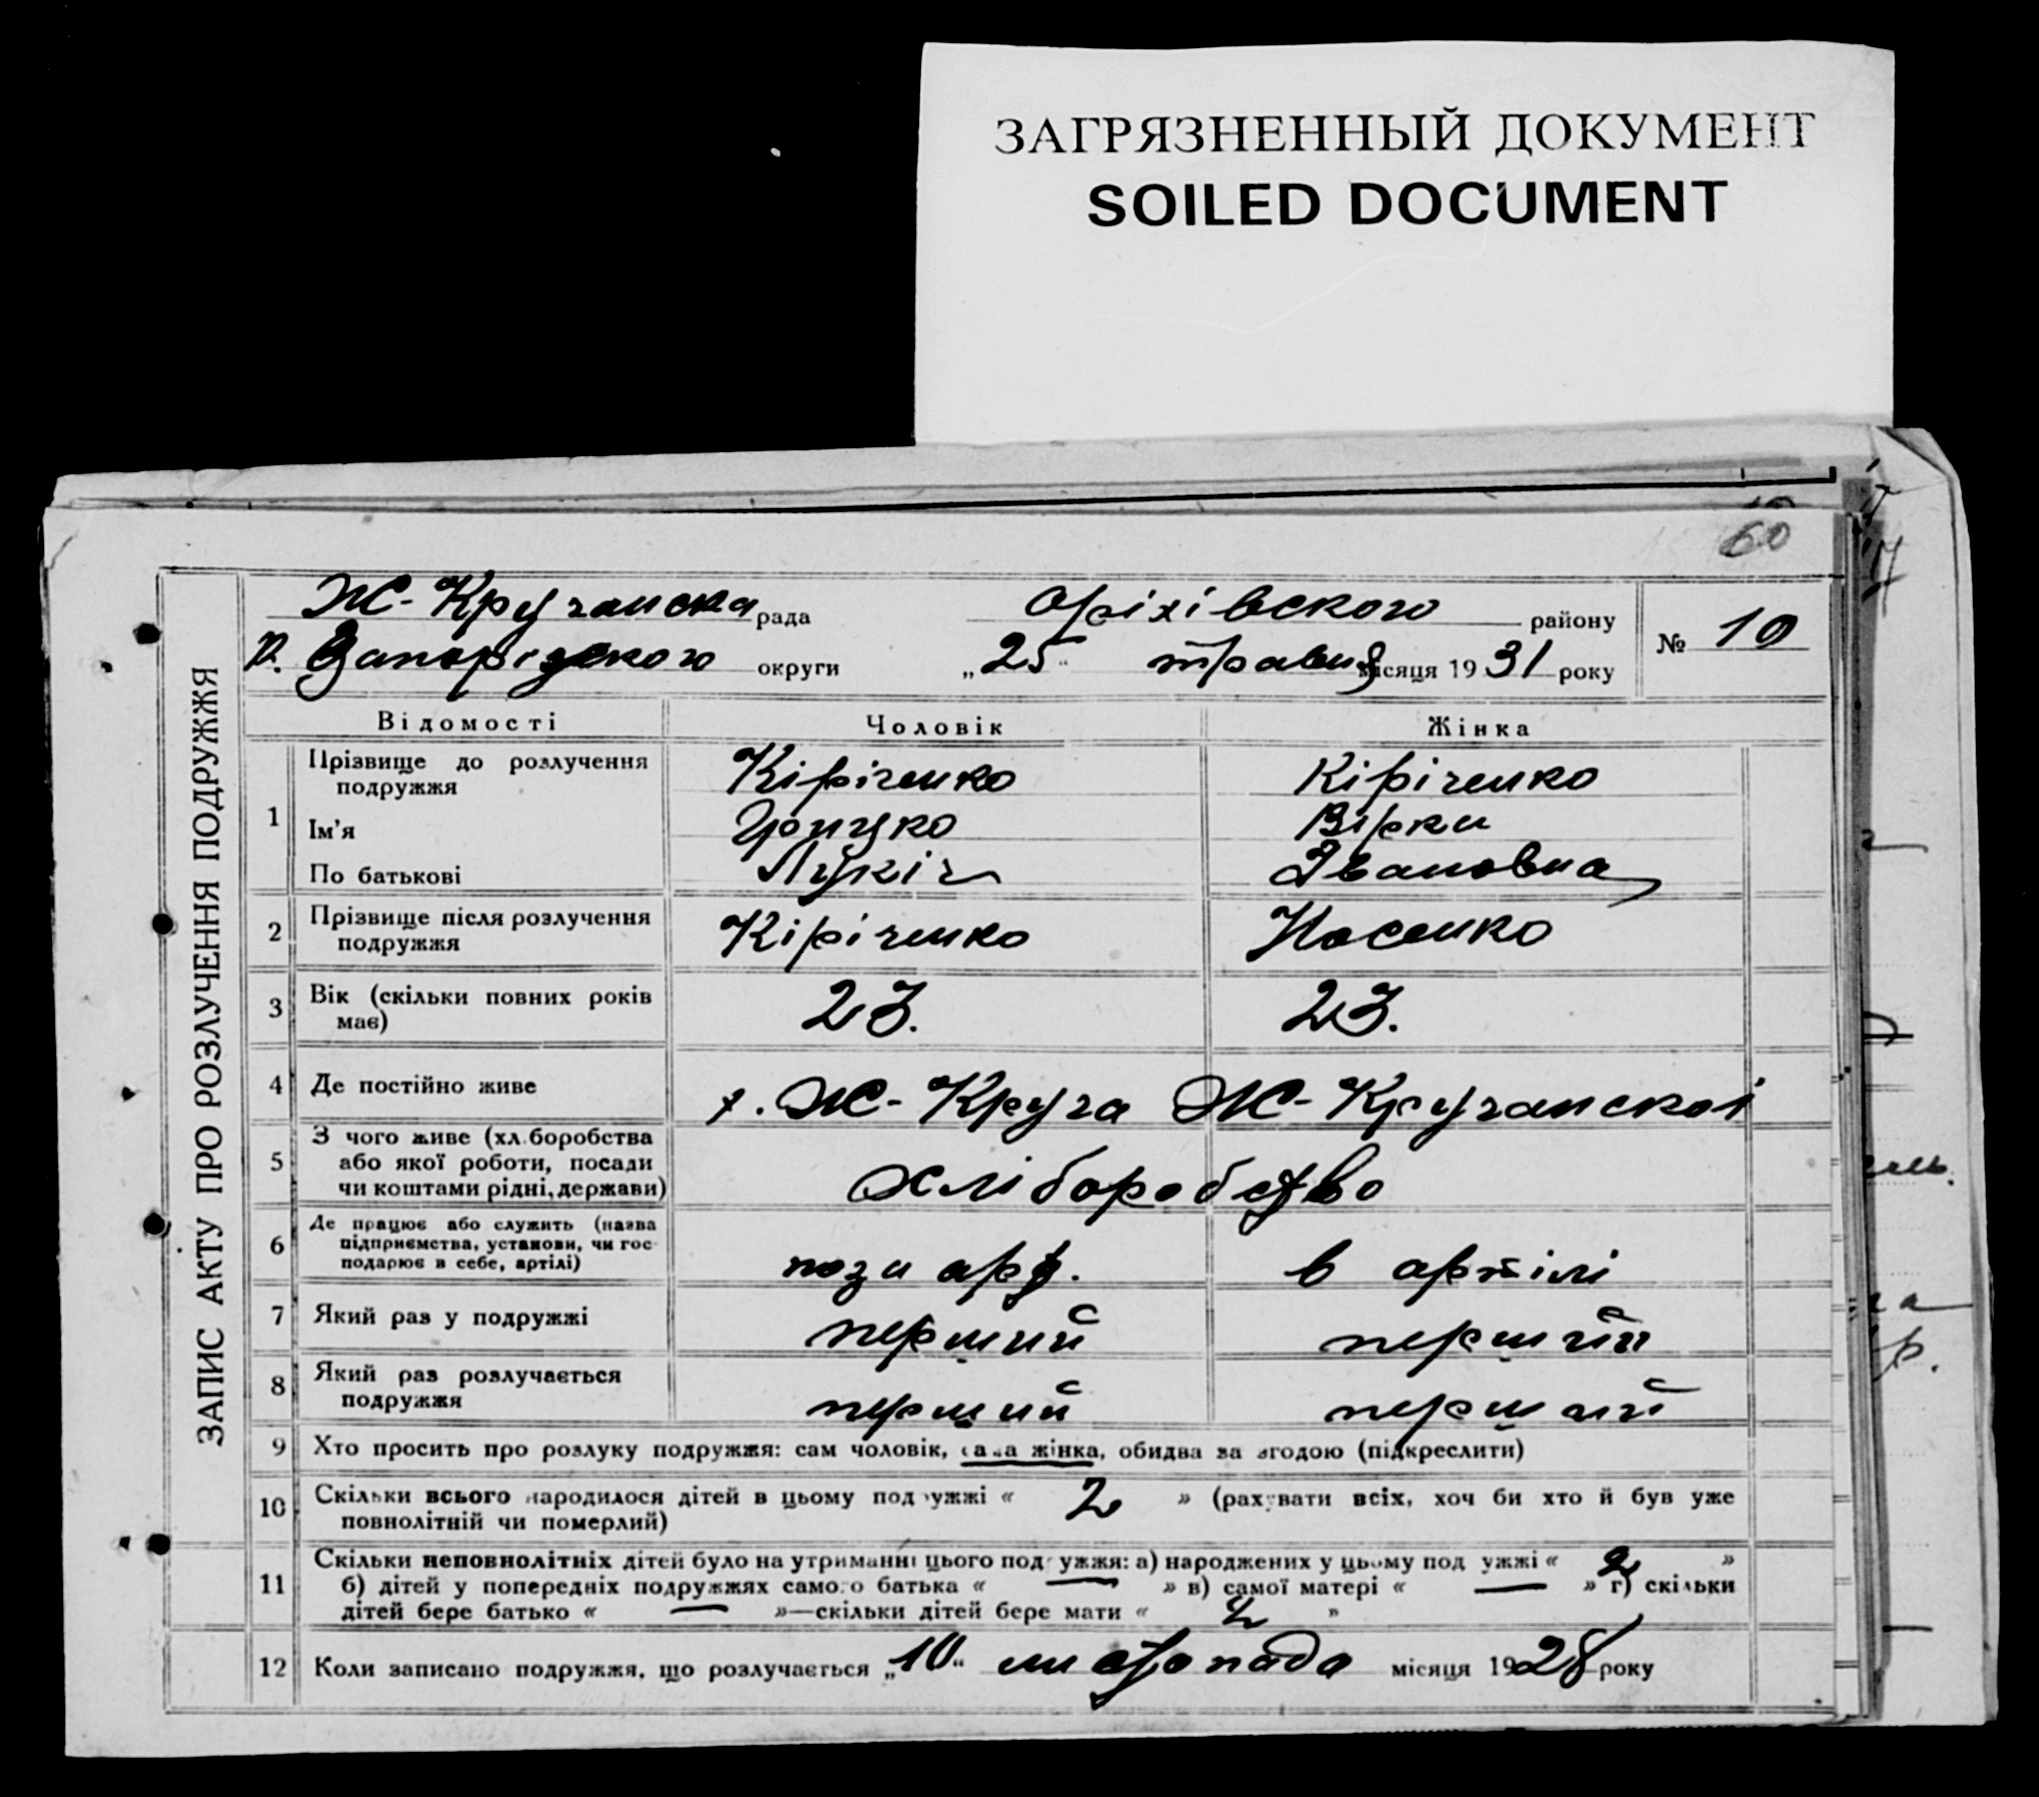 ЗАГРЯЗНЕННЫЙ ДОКУМЕНТ
SOILED DOCUMENT
60
ЗАПИС АКТУ ПРО РОЗЛУЧЕННЯ ПОДРУЖЖЯ
Ж-Кручанска рада Оріхівского району № 10
р. Запорізского округи „25“ травня місяця 1931 року
Відомості Чоловік Жінка
1 Прізвище до розлучення подружжя Кіріченко Кіріченко
Ім'я Грицко Вірки
По батькові Лукіч Івановна
2 Прізвище після розлучення подружжя Кіріченко Носенко
3 Вік (скільки повних років має) 23. 23.
4 Де постійно живе х. Ж-Круча Ж-Кручанскоі
5 З чого живе (хл.боробства або якої роботи, посади чи коштами рідні, держави) Хліборобство
6 Де працює або служить (назва підприємства, установи, чи гос-подарює в себе, артілі) поза арт. в артілі
7 Який раз у подружжі перший перший
8 Який раз розлучається подружжя перший перший
9 Хто просить про розлуку подружжя: сам чоловік, сама жінка, обидва за згодою (підкреслити)
10 Скільки всього народилося дітей в цьому подружжі « 2 » (рахувати всіх, хоч би хто й був уже
повнолітній чи померлий)
11 Скільки неповнолітніх дітей було на утриманні цього подружжя: а) народжених у цьому подружжі « 2 »
б) дітей у попередніх подружжях самого батька « — » в) самої матері « — » г) скільки
дітей бере батько « — »—скільки дітей бере мати « 2 »
12 Коли записано подружжя, що розлучається „10“ листопада місяця 1928 року